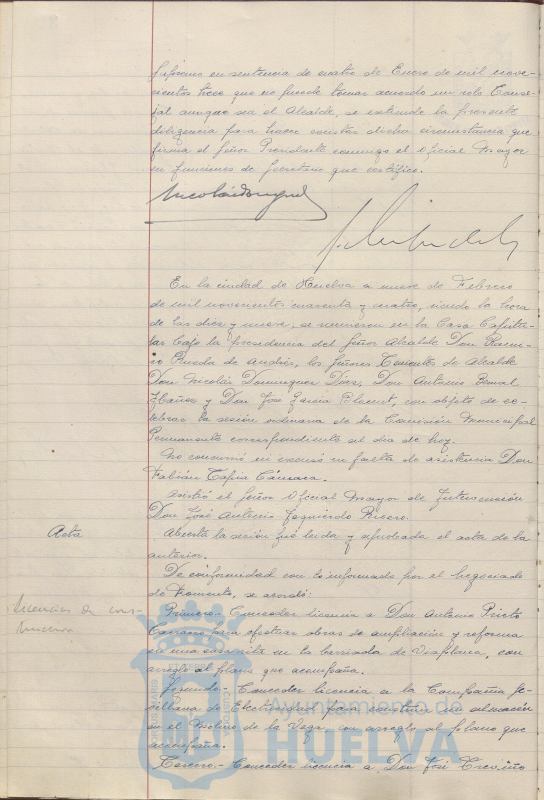 Supremo en sentencia de cuatro de Enero de mil nove-
cientos trece que no puede tomar acuerdo un solo Conce-
jal aunque sea el Alcalde, se extiende la presente
diligencia para hacer constar dicha circunstancia que
firma el Señor Presidente conmigo el Oficial Mayor
en funciones de Secretario que certifico.
En la ciudad de Huelva a nueve de Febrero
de mil novecientos cuarenta y cuatro, siendo la hora
de las diez y nueve, se reunieron en la Casa Capitu-
lar bajo la Presidencia del Señor Alcalde Don
Rueda de Andrés, los Señores Tenientes de Alcalde
Don Nicolás Dominguez Díaz, Don Antonio Bernal
Ibañez y Don José García con objeto de ce-
lebrar la sesión ordinaria de la Comisión Municipal
Permanente correspondiente al día de hoy.
No concurrió ni excusó su falta de asistencia Don
Fabián Cámara.
Asistió el Señor Oficial Mayor de Intervención
Don José Antonio Izquierdo
Acta
Abierta la sesión fué leida y aprobada el acta de la
anterior.
De conformidad con lo informado por el Negociado
de Fomento, se acordó:
Licencias de cons-
trucción
Primero.- Conceder licencia a Don Antonio Prieto
Carrasco para efectuar obras de ampliación y reforma
en una casa sita en la barriada de Viaplana, con
arreglo al plano que acompaña.
Segundo.- Conceder licencia a la Compañía Se-
villana de Electricidad para construir un almacén
en el Molino de la Vega, con arreglo al plano que
acompaña.
Tercero.- Conceder licencia a Don José Treviño
Ayuntamiento de
HUELVA